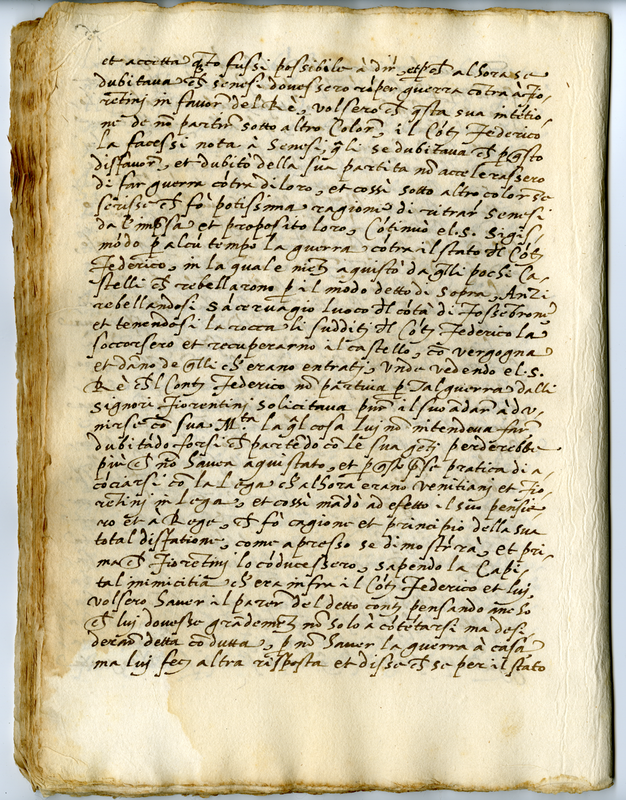 et accetta q̃to fussi possibile à dir̃, et p̃ch̃ alhora se
dubitava ch̃ Senesi dovessero rõper guerra cõtra à Fio-
rentini in favor del Rè, volsero ch̃ q̃sta sua intẽtio-
ne de nõ partir̃ sotto altro color̃, il Cõt̃ Federico
La facessi nota à Senesi, q̃li se dubitava ch̃ p̃ q̃sto
disfavor̃, et dubito della sua partita nõ accelerassero
di far guerra cõtra di loro, et cossi sotto altro color se
scrisse ch̃ fò potissima ragione di ritrar Senesi
da l'imp̃sa et proposito loro, Cõtinuò el S. Sigis-
mõdo p̃ alcũ tempo la guerra cõtra il stato d̃l Cõt̃
Federico, in la quale mẽt̃ aquistò da q̃lli pochi Ca-
stelli ch̃ rebellarono p̃ il modo detto di sopra, Anzi
rebellandosi Sacervagio luoco d̃l cõtà di Fossẽbrone
et tenendosi la rocca li sudditi d̃l Cõt̃ Federico la
soccorsero et recuperarno il castello, cõ vergogna
et dãno de q̃lli ch'erano entrati, unde vedendo el S.
Rè ch̃l Cont̃ Federico nõ partiva p̃ Tal guerra dalli
Signori Fiorentini solicitava pur̃ il suo andar à du-
nirse cõ sua M.ta la q̃l cosa lui nõ intendeva far̃
dubitãdo forsi ch̃ partẽdo cõ le sua gẽti perderebbe
più ch̃ nõ haveva aquistato, et p̃ q̃sto p̃se pratica di a-
cõciarsi cõ la Lega ch'alhora erano venitiani et Fio-
rẽtini in Lega, et cossì mãdò ad efetto il suo pensie-
ro et à Rege, ch̃ fò cagione et principio della sua
total disfatione, come apresso se dimostrerà, et pri-
ma ch̃ Fiorentini lo cõducessero, sapendo la Capi-
tal inimicitia ch'era infra il Cõt̃ Federico et lui,
volsero haver il parer̃ del detto cont̃ pensando ancho
ch̃ lui dovesse grãdemẽt̃ nõ solo à cõtẽtarsi ma desi-
derar̃ detta condutta, p̃ nõ haver la guerra à casa
ma lui fece altra risposta et disse ch̃ se per il stato